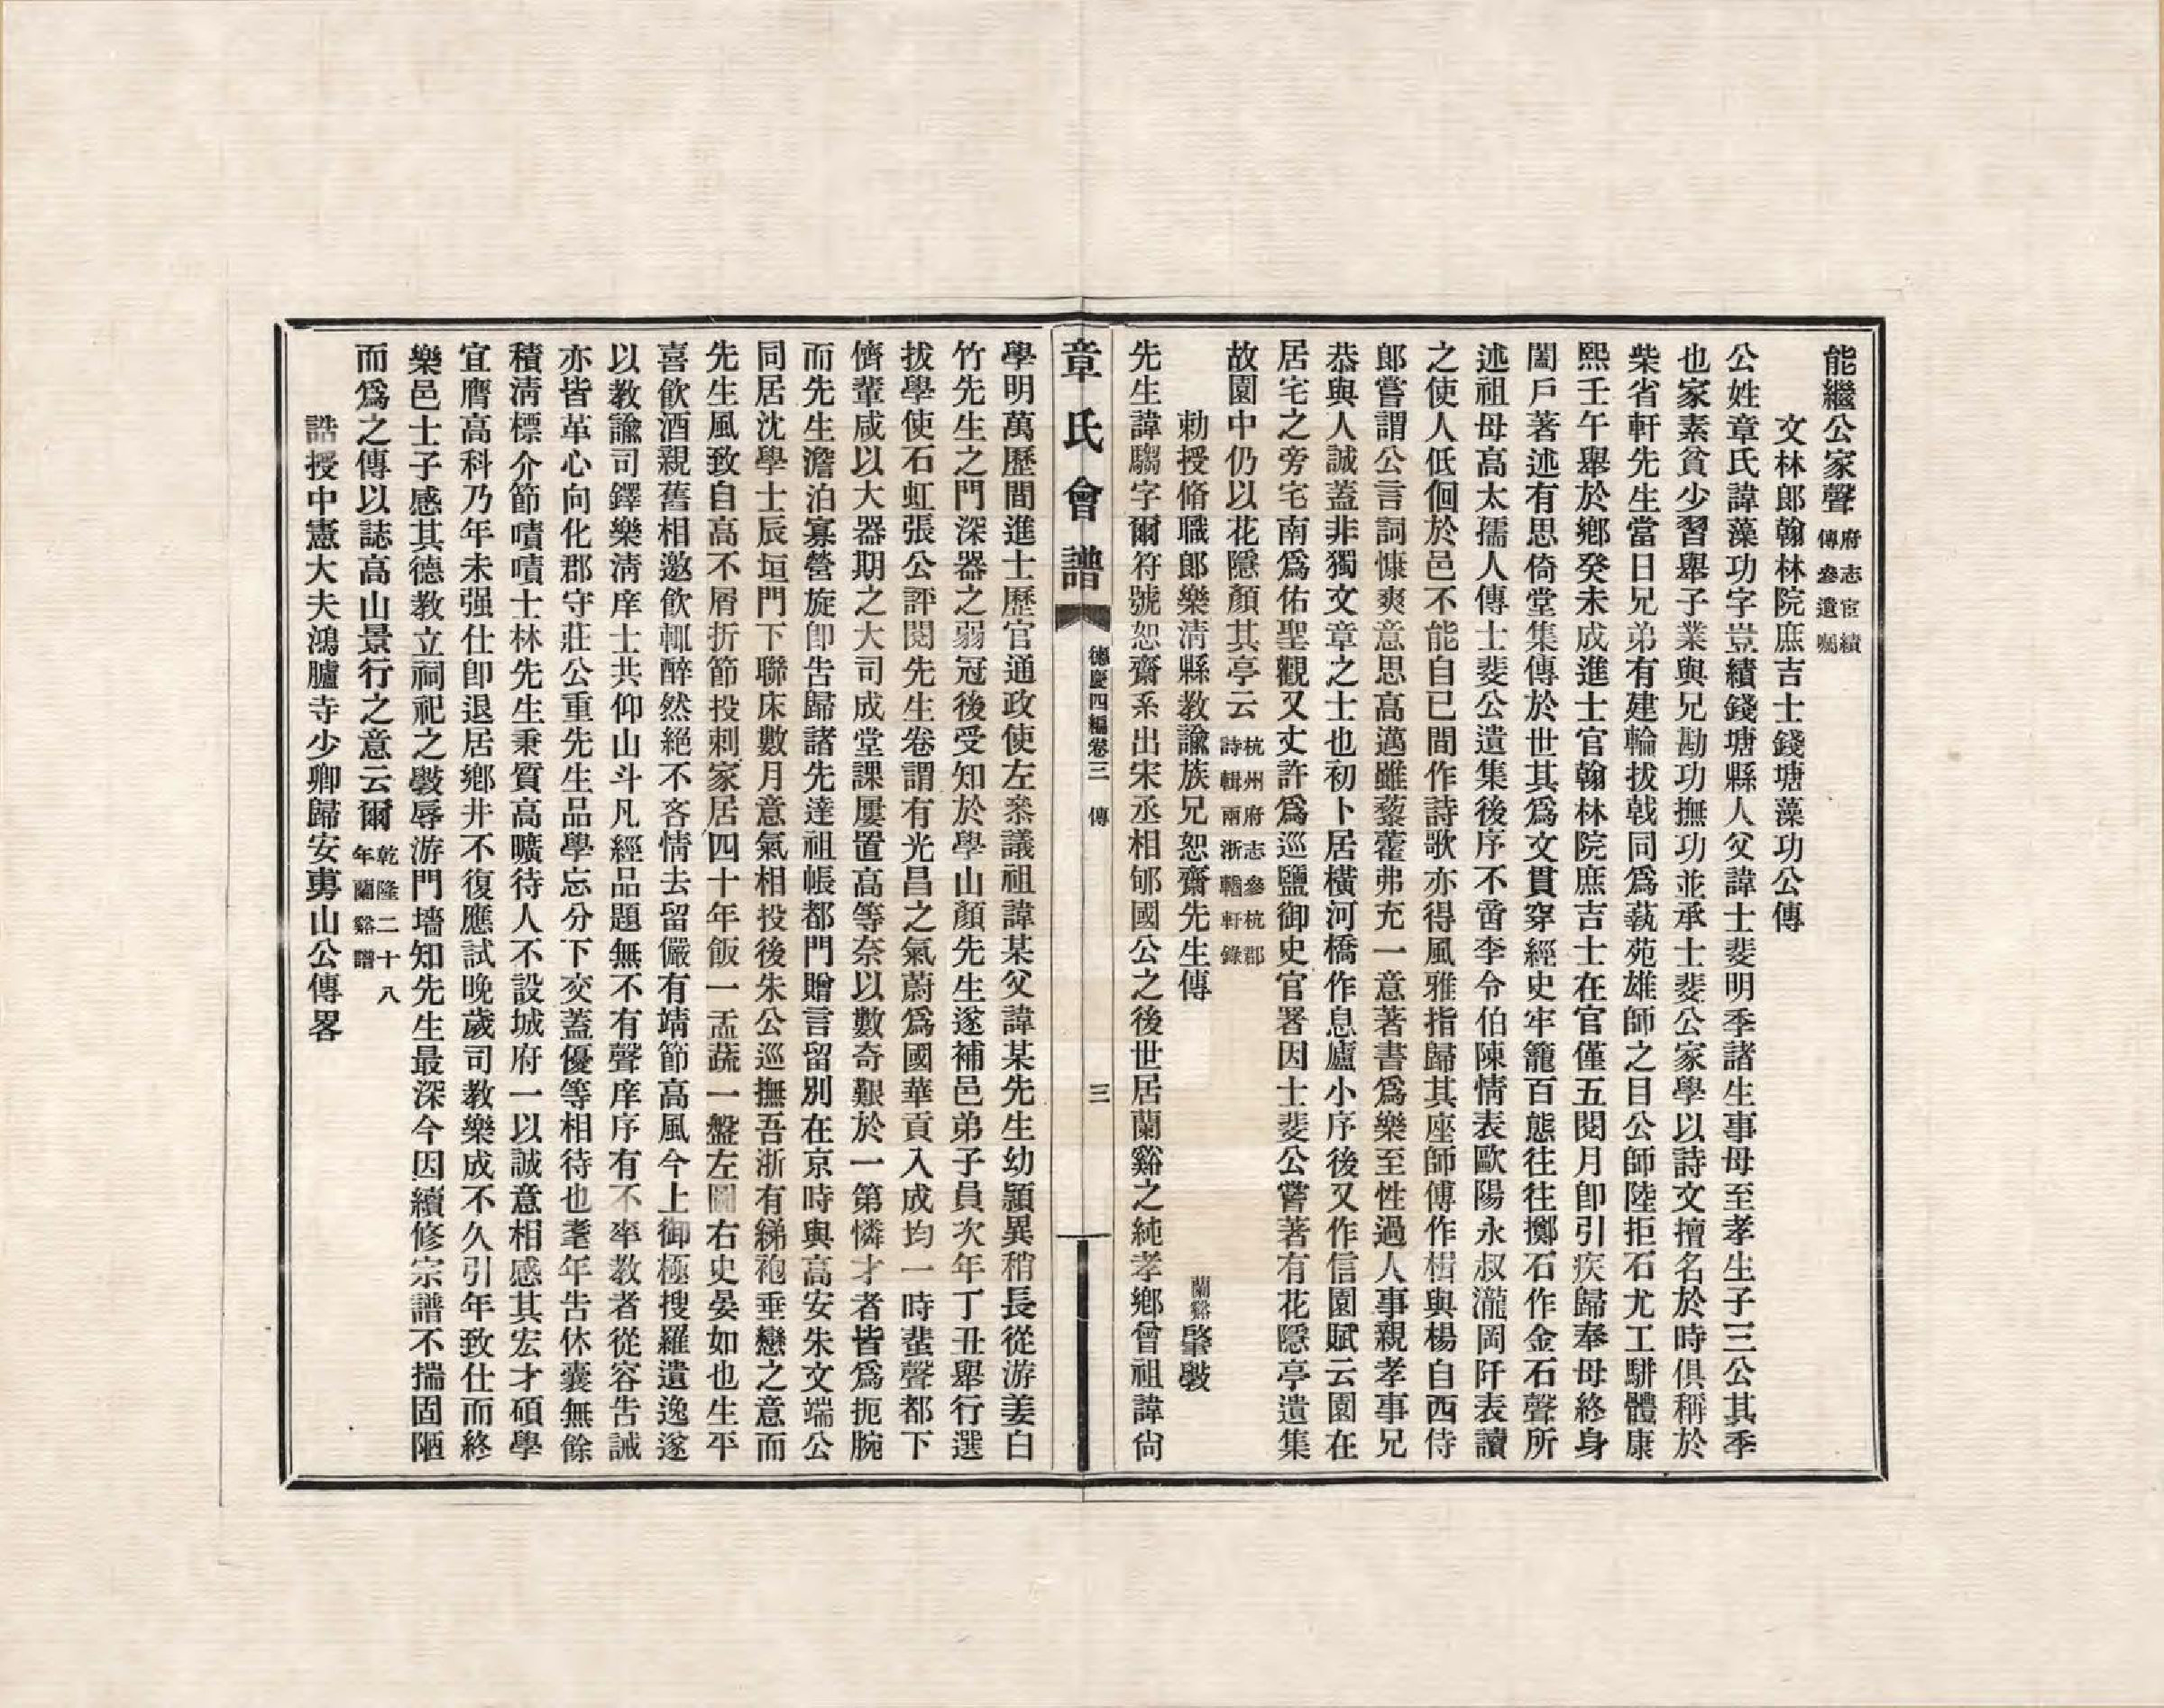 能繼公家聲府志宦績傳參遺囑
文林郎翰林院庶吉士錢塘藻功公傳
公姓章氏諱藻功字豈績錢塘縣人父諱士斐明季諸生事母至孝生子三公其季
也家素貧少習舉子業與兄勘功撫功並承士斐公家學以詩文擅名於時俱稱於
柴省軒先生當日兄弟有建輪拔戟同爲蓺苑雄師之目公師陸拒石尤工駢體康
熙壬午舉於鄉癸未成進士官翰林院庶吉士在官僅五閱月卽引疾歸奉母終身
闔戶著述有思倚堂集傳於世其爲文貫穿經史牢籠百態往往擲石作金石聲所
述祖母高太孺人傳士斐公遺集後序不啻李令伯陳情表歐陽永叔瀧岡阡表讀
之使人低佪於邑不能自已間作詩歌亦得風雅指歸其座師傅作楫與楊自西侍
郎嘗謂公言詞慷爽意思高邁雖藜藿弗充一意著書爲樂至性過人事親孝事兄
恭與人誠蓋非獨文章之士也初卜居橫河橋作息廬小序後又作信園賦云園在
居宅之旁宅南爲佑聖觀又丈許爲巡鹽御史官署因士斐公嘗著有花隱亭遺集
故園中仍以花隱顏其亭云杭州府志參杭郡詩輯兩浙輶軒錄
勅授脩職郎樂清縣教諭族兄恕齋先生傳 蘭谿肇斅
先生諱騶字爾符號恕齋系出宋丞相郇國公之後世居蘭谿之純孝鄉曾祖諱尙
章氏會譜 德慶四編卷三 傳 三
學明萬歷間進士歷官通政使左叅議祖諱某父諱某先生幼穎異稍長從游姜白
竹先生之門深器之弱冠後受知於學山顏先生遂補邑弟子員次年丁丑舉行選
拔學使石虹張公評閱先生卷謂有光昌之氣蔚爲國華貢入成均一時蜚聲都下
儕輩咸以大器期之大司成堂課屢置高等奈以數奇艱於一第憐才者皆爲扼腕
而先生澹泊寡營旋卽告歸諸先達祖帳都門贈言留別在京時與高安朱文端公
同居沈學士辰垣門下聯床數月意氣相投後朱公巡撫吾浙有綈袍垂戀之意而
先生風致自高不屑折節投刺家居四十年飯一盂蔬一盤左圖右史晏如也生平
喜飲酒親舊相邀飲輒醉然絕不吝情去留儼有靖節高風今上御極搜羅遺逸遂
以教諭司鐸樂淸庠士共仰山斗凡經品題無不有聲庠序有不率教者從容告誡
亦皆革心向化郡守莊公重先生品學忘分下交蓋優等相待也耄年告休囊無餘
積淸標介節嘖嘖士林先生秉質高曠待人不設城府一以誠意相感其宏才碩學
宜膺高科乃年未强仕卽退居鄉井不復應試晩歲司教樂成不久引年致仕而終
樂邑士子感其德教立祠祀之斅辱游門墻知先生最深今因續修宗譜不揣固陋
而爲之傳以誌高山景行之意云爾乾隆二十八年蘭谿譜
誥授中憲大夫鴻臚寺少卿歸安男山公傳畧